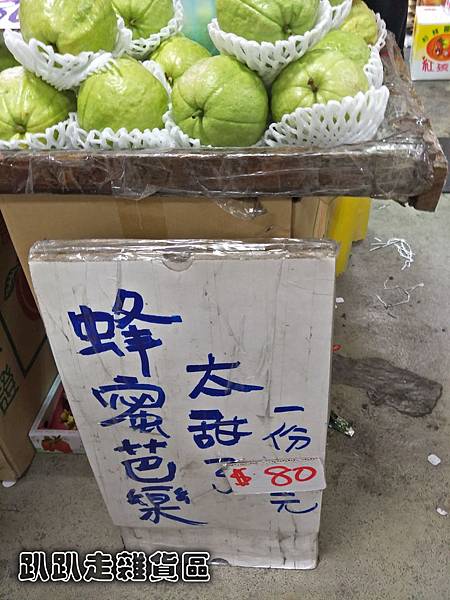 蜂蜜芭樂
太甜了
一份
$80
元
趴趴走雜貨區